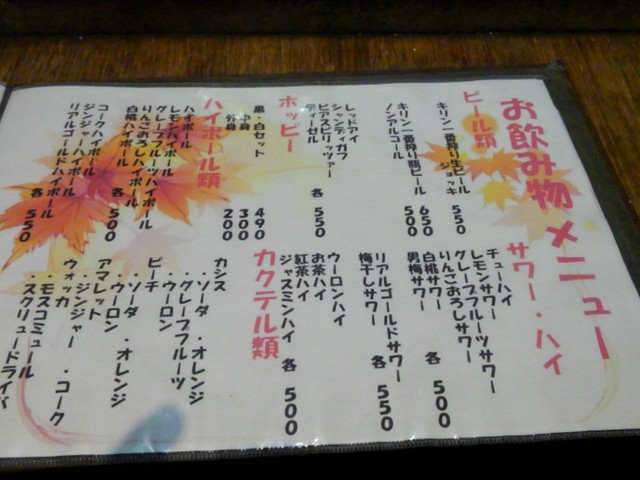 お飲み物 メニュー
ビール類
キリン一番搾り生ビール
ジョッキ 550
キリン一番搾り瓶ビール 650
ノンアルコール 500
レッドアイ
シャンディガフ
ビアスピリッツァー
ディーゼル 各 550
ホッピー
黒・白セット 490
中身 300
外身 200
ハイボール類
ハイボール
レモンハイボール
グレープフルーツハイボール
りんごおろしハイボール
白桃ハイボール 各 500
コークハイボール
ジンジャーハイボール
リアルゴールドハイボール 各 550
サワー・ハイ
チューハイ
レモンサワー
グレープフルーツサワー
りんごおろしサワー
白桃サワー
男梅サワー 各 500
リアルゴールドサワー
梅干しサワー 各 550
ウーロンハイ
お茶ハイ
紅茶ハイ
ジャスミンハイ 各 500
カクテル類
カシス
・ソーダ ・オレンジ
・グレープフルーツ
・ウーロン
ピーチ
・ソーダ ・オレンジ
・ウーロン
アマレット
・ジンジャー ・コーク
ウォッカ
・モスコミュール
・スクリュードライバ